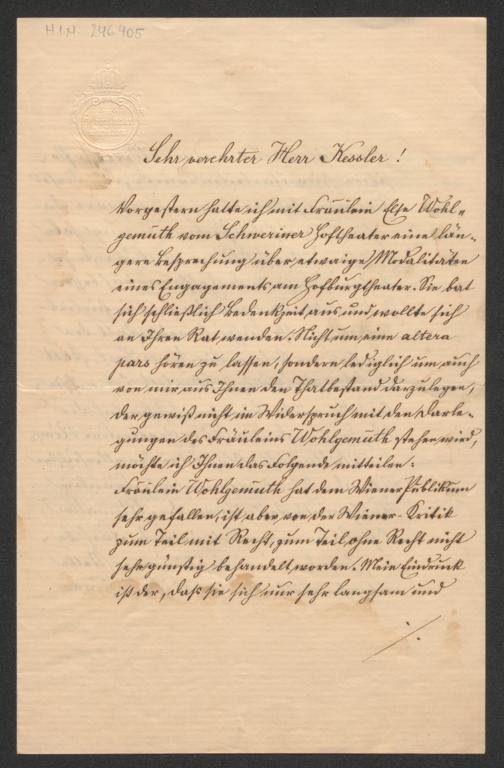 H.I.N. 246405
Sehr verehrter Herr Kessler!
Vorgestern hatte ich mit Fräulein Else Wohl-
gemuth vom Schweriner Hoftheater eine län-
gere Besprechung über etwaige Modalitäten
eines Engagements am Hofburgtheater. Sie bat
sich schließlich Bedenkzeit aus und wollte sich
an Ihren Rat wenden. Nicht um eine altera
pars hören zu lassen, sondern lediglich um auch
von mir aus Ihnen den Thatbestand darzulegen,
der gewiß nicht im Widerspruch mit den Darle-
gungen des Fräuleins Wohlgemuth stehen wird,
möchte ich Ihnen das Folgende mitteilen:
Fräulein Wohlgemuth hat dem Wiener Publikum
sehr gefallen, ist aber von der Wiener Kritik
zum Teil mit Recht, zum Teil ohne Recht nicht
sehr günstig behandelt worden. Mein Eindruck
ist der, daß sie sich nur sehr langsam und
./.